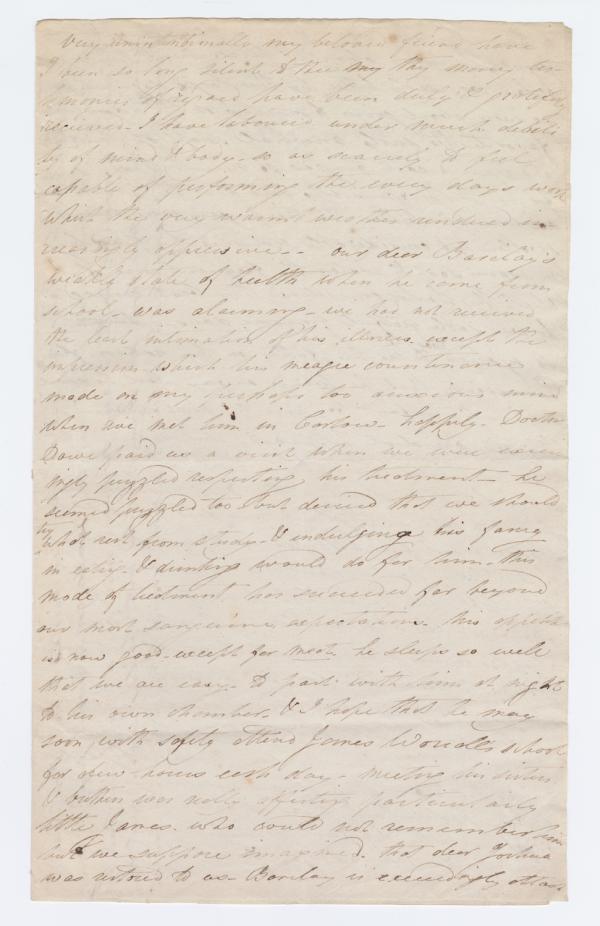 Very unintentionally my beloved friend have
I been so long silent to thee my thy many tes-
timonies of regard have been duly & gratefully
received. I have laboured under much debili
ty of mind & body so as scarcely to feel
capable of performing the every days work
which the very warm weather rendered in-
creasingly oppressive - our dear Barclay's
weakly state of health when he came from
school - was alarming - we had not received
the least intimation of his illness except the
impression which his meagre countenance
made on my perhaps too anxious mind
when we met him in Carlow - happily - Doctor
paid us a visit when we were exceed
ingly puzzled respecting his treatment - he
seemed puzzled too but desired that we should
try what rest from study & indulging his fancy
in eating & drinking would do for him - This
mode of treatment has succeeded far beyond
our most sanguine expectation. his appetite
is now good - except for meat. he sleeps so well
that we are easy - to part with him at night
to his own chamber. & I hope that he may
soon with safety attend James school
for a few hours each day - meeting his sisters
& brothers was really affecting particularly
little James. who could not remember him
but we suppose imagined that dear Joshua
was restored to us - Barclay is exceedingly attach